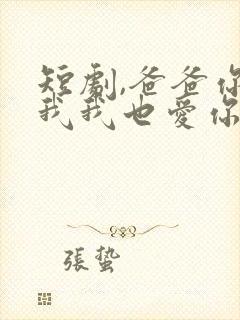 短劇,爸爸你
我我也愛你
張蟄